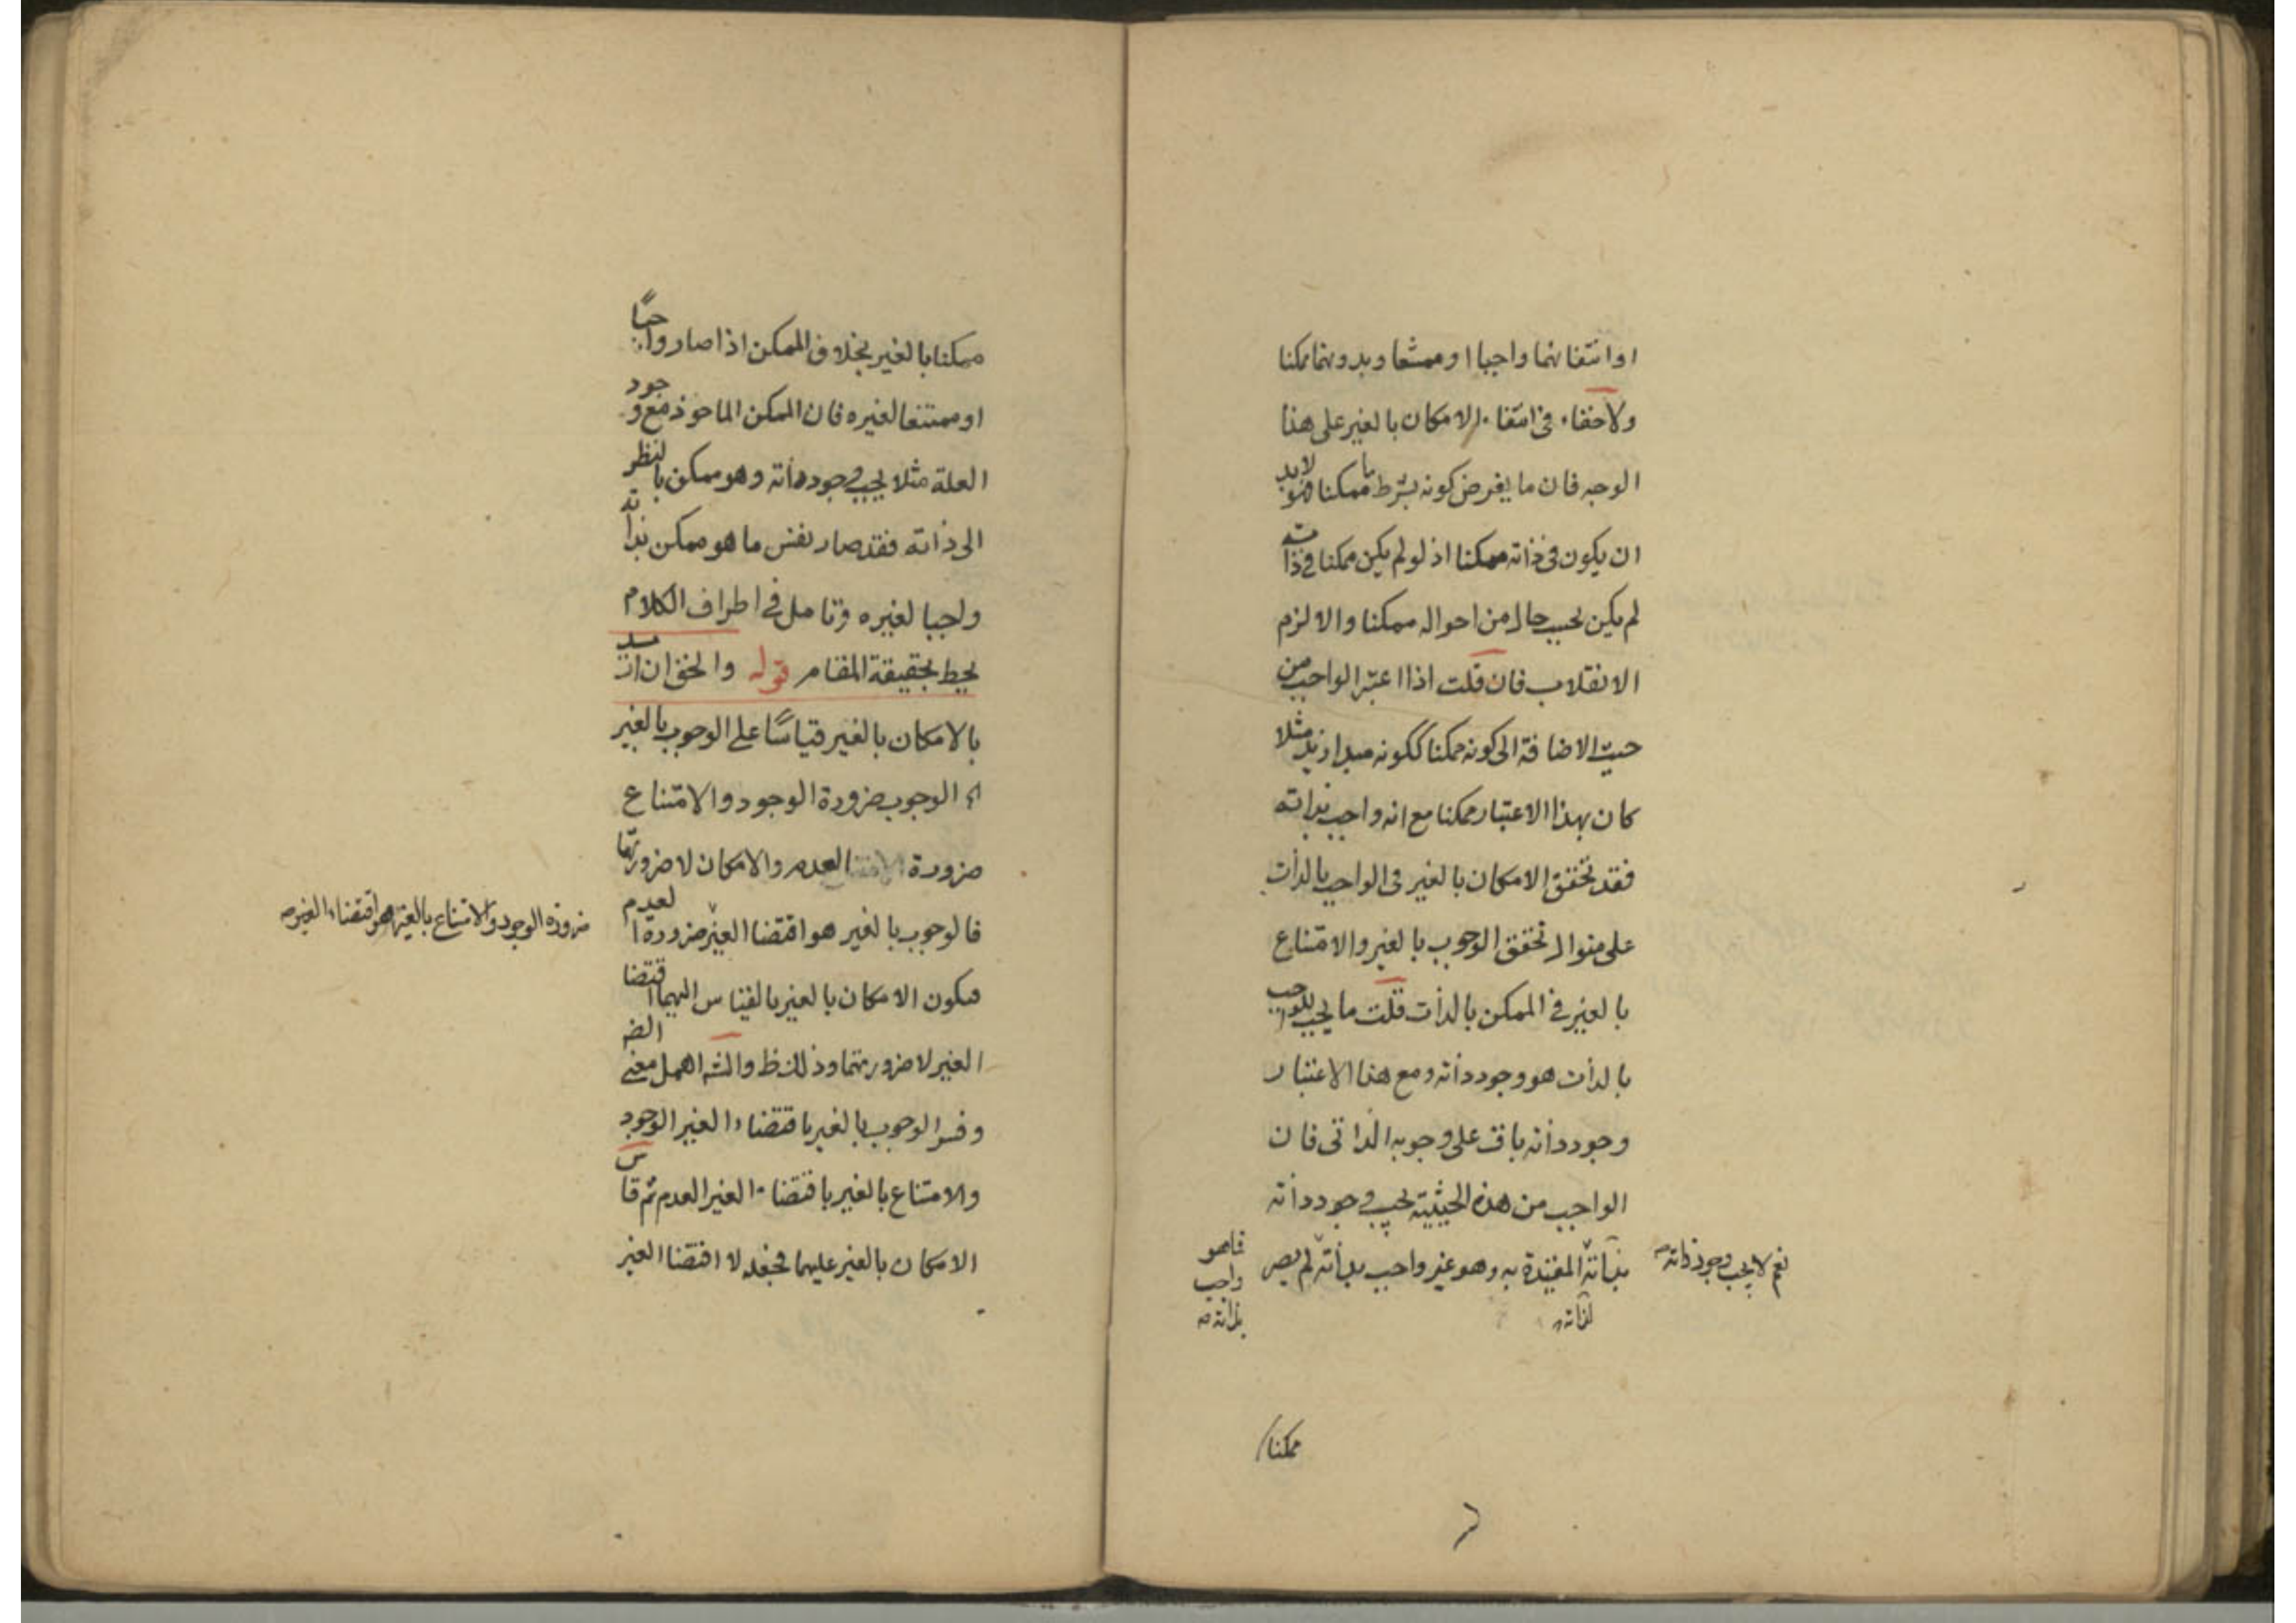 او انتفائهما واجبا او ممتنعا وبدونهما ممكنا
ولا خفاء في انتفاء الامكان بالغير على هذا
الوجه فان ما يفرض كونه بشرط ما ممكنا فهو لابد
ان يكون في ذاته ممكنا اذ لو لم يكن ممكنا في ذاته
لم يكن بحسب حال من احواله ممكنا والا لزم
الانقلاب فان قلت اذا اعتبر الواجب من
حيث الاضافة الى كونه ممكنا ككونه مبدا زيد مثلا
كان بهذا الاعتبار ممكنا مع انه واجب بذاته
فقد تحقق الامكان بالغير في الواجب بالذات
على منوال تحقق الوجوب بالغير والامتناع
بالغير في الممكن بالذات قلت ما يجب للواجب
بالذات هو وجود ذاته ومع هذا الاعتبار
وجود ذاته باق على وجوبه الذاتي فان
الواجب من هذه الحيثية يجب وجود ذاته
بذاته المقيدة به وهو غير واجب بذاته لم يصر
نعم لا يجب وجود ذاته صه
لذاته
فما هو
واجب
بذاته صه
ممكنا
ممكنا بالغير بخلاف الممكن اذا صار واجبًا
او ممتنعا لغيره فان الممكن الماخوذ مع وجود
العلة مثلا يجب وجود ذاته وهو ممكن بالنظر
الى ذاته فقد صار نفس ما هو ممكن بذاته
واجبا لغيره وتامل في اطراف الكلام
يحط بحقيقة المقام قوله والحق ان اريد
بالامكان بالغير قياسًا على الوجوب بالغير
اه الوجوب ضرورة الوجود والامتناع
ضرورة العدم والامكان لا ضرورتهما
فالوجوب بالغير هو اقتضا الغير ضرورة العدم
ضرورة الوجود والامتناع بالغير هو اقتضاء الغير صه
فيكون الامكان بالغير بالقياس اليهما اقتضا
الغير لا ضرورتهما وذلك ظ والشه اهمل معنى الضر
وفسر الوجوب بالغير باقتضاء الغير الوجود
والامتناع بالغير باقتضاء الغير العدم ثم قاس
الامكان بالغير عليهما فجعله لا اقتضا الغير